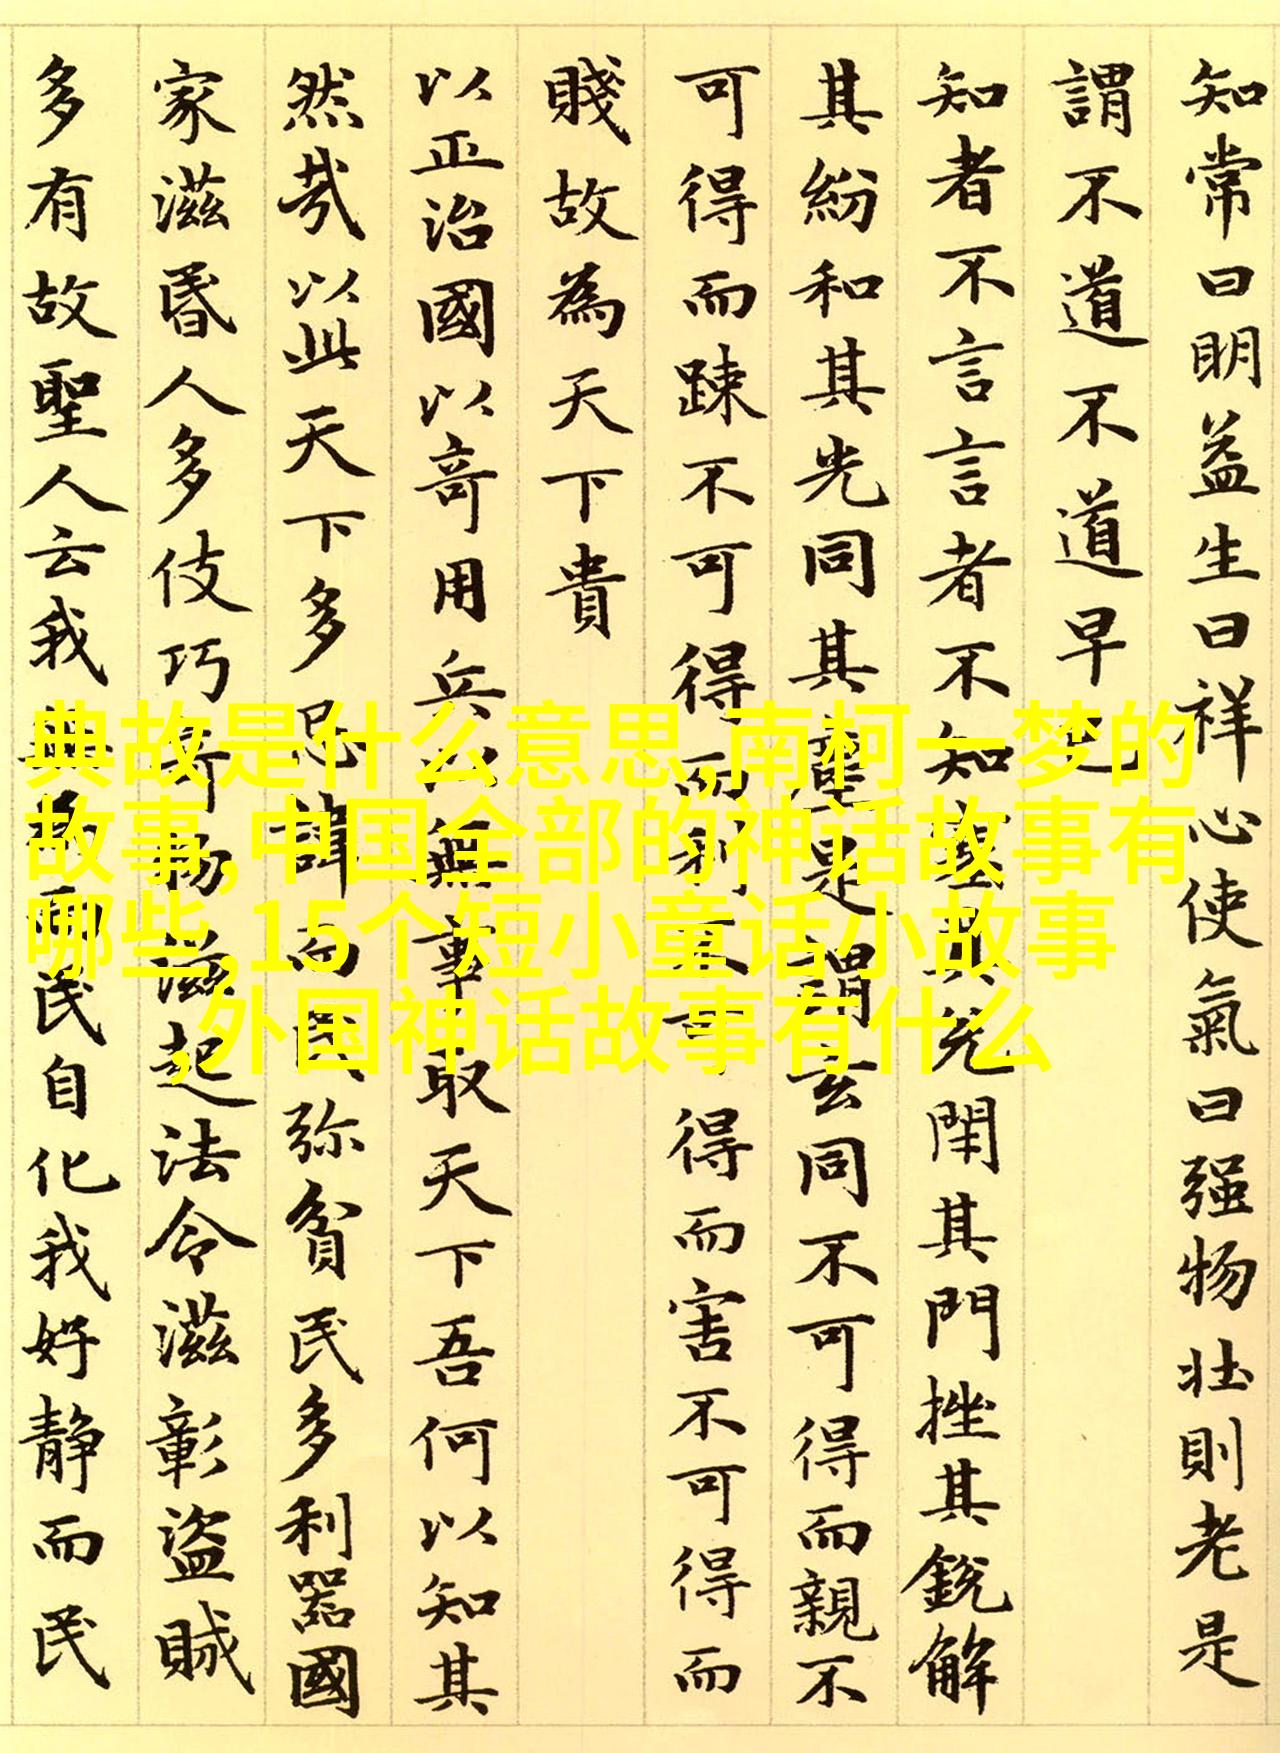 知常曰明益生曰祥心使氣曰强物壯則老是
謂不道不道早已
知者不言言者不知塞其兌閇其門挫其銳解
其紛和其光同其塵是謂玄同不可得而親不
可得而踈不可得而利不可得而害不可得而
賤故為天下貴
以正治國以奇用兵以無事取天下吾何以知其
然哉以此天下多忌諱而民弥貧民多利器國
家滋昬人多伎巧奇物滋起法令滋彰盜賊
多有故聖人云我無為而民自化我好静而民
典故是什么意思,南柯一梦的
故事,中国全部的神话故事有
哪些,15个短小童话小故事
,外国神话故事有什么